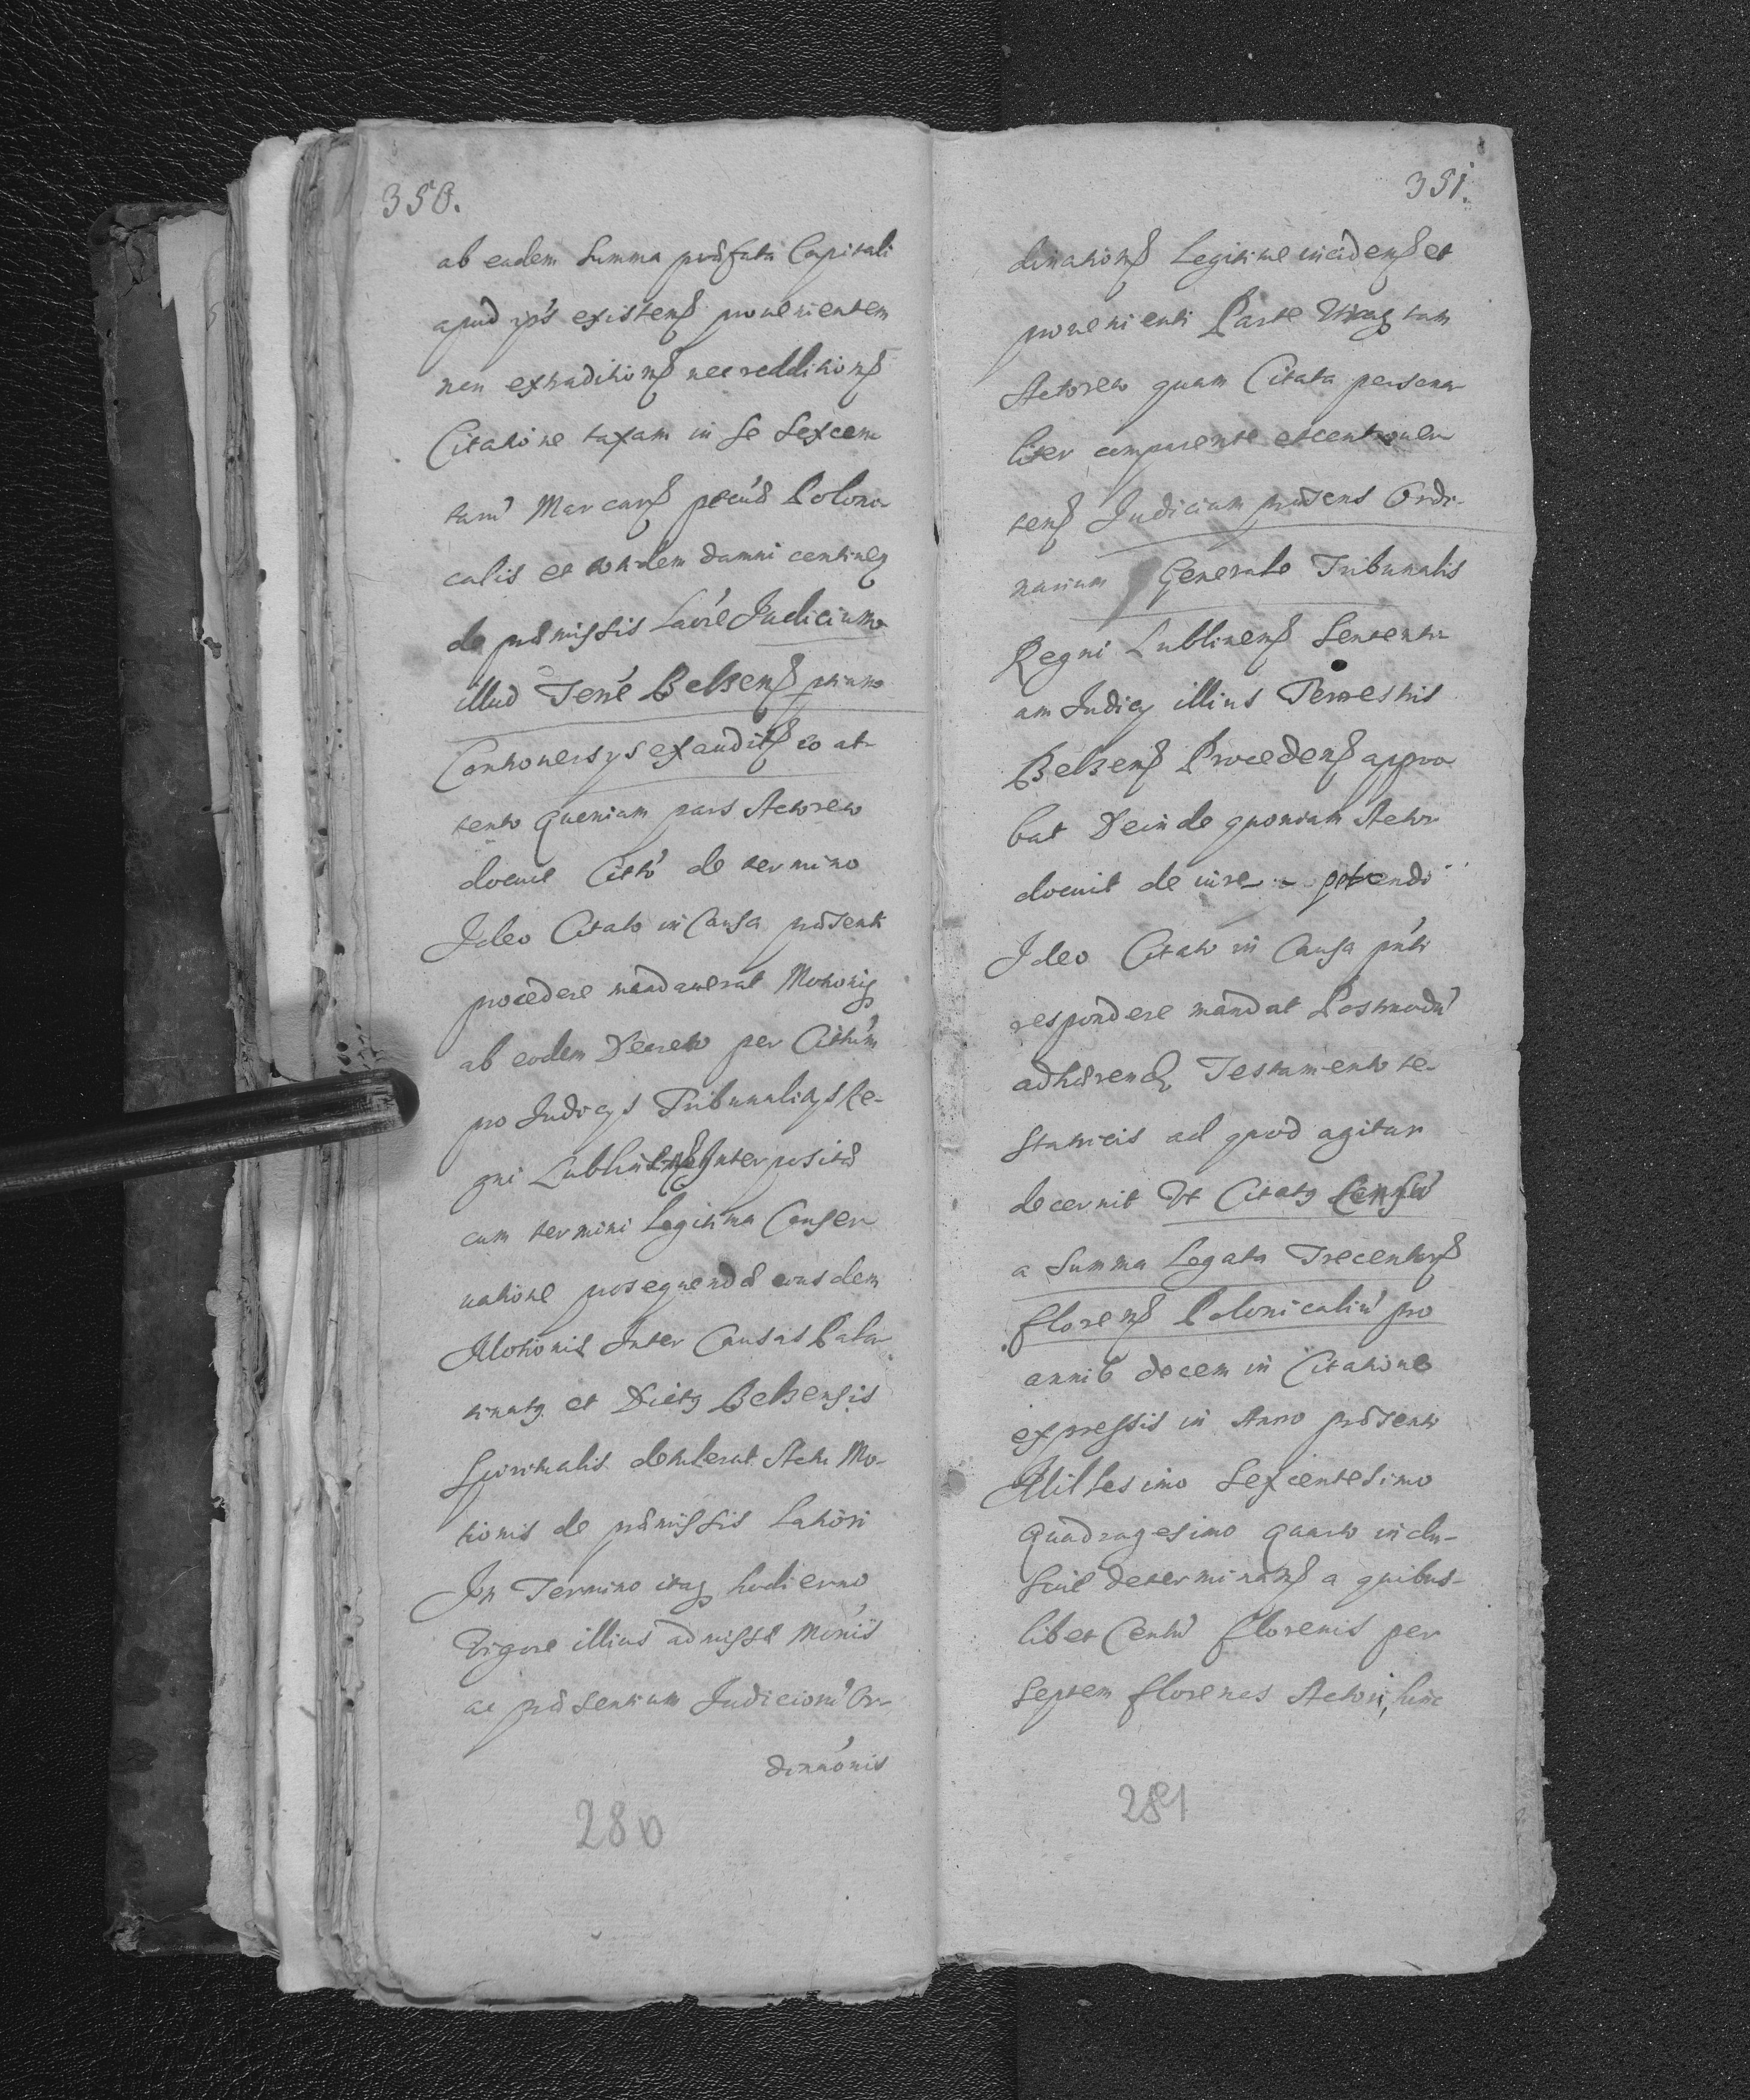 350.
ab eadem Summa præfata Capitali
apud ips existens prouenientem
non extraditions nec redditions
Citatione taxam in se Sexcen
taru Marcars pecuæ Poloni
calis et totidem damni continen
de præmissis Latore Judicium
illud Terre Belzens primo
Controuersys exauditis eo at
tento Quoniam pars Actorea
docuit Citto de termino
Ideo Citato in Causa præsenti
procedere mandauerat Motionis
ab eodem Decreto per Cittum
pro Judicys Tribunalitys Re-
gni Lublinens Interpositæ
cum termini Legitima Conser
uatione prosequendæ eiusdem
Motionis Inter Causas Pala
tinatg et Dictg Belzensis
Spiritualis detulerat Actu Mo-
tionis de præmissis Latiori
In Termino itaq hodierno
Vigore illius admissæ Monis
ac præsentium Judicioru Or
dinaonis
280
351.
dinations Legitime incidens et
prouenienti Parte Utraq tam
Actorea quam Citata persona
liter comparente et controuer
tens Judicium præsens Ordi-
narium Generale Tribunalis
Regni Lublinens Sententi
am Judicy illius Terrestris
Belzens Procedens appro
bat Deinde quoniam Actor
docuit de iure
Ideo Citato in Causa pnti
respondere mandat Postmodu
adhærend Testamento te-
statricis ad quod agitur
decernit Vt Citatg Censu
a Summa Legata Trecentors
florens Polonicaliu pro
annis decem in Citatione
expressis in Anno præsenti
Millesimo Sexcentesimo
Quadragesimo quarto inclu-
siue determinans a quibus-
libet Centu florenis per
septem florenos Actori, hinc
281